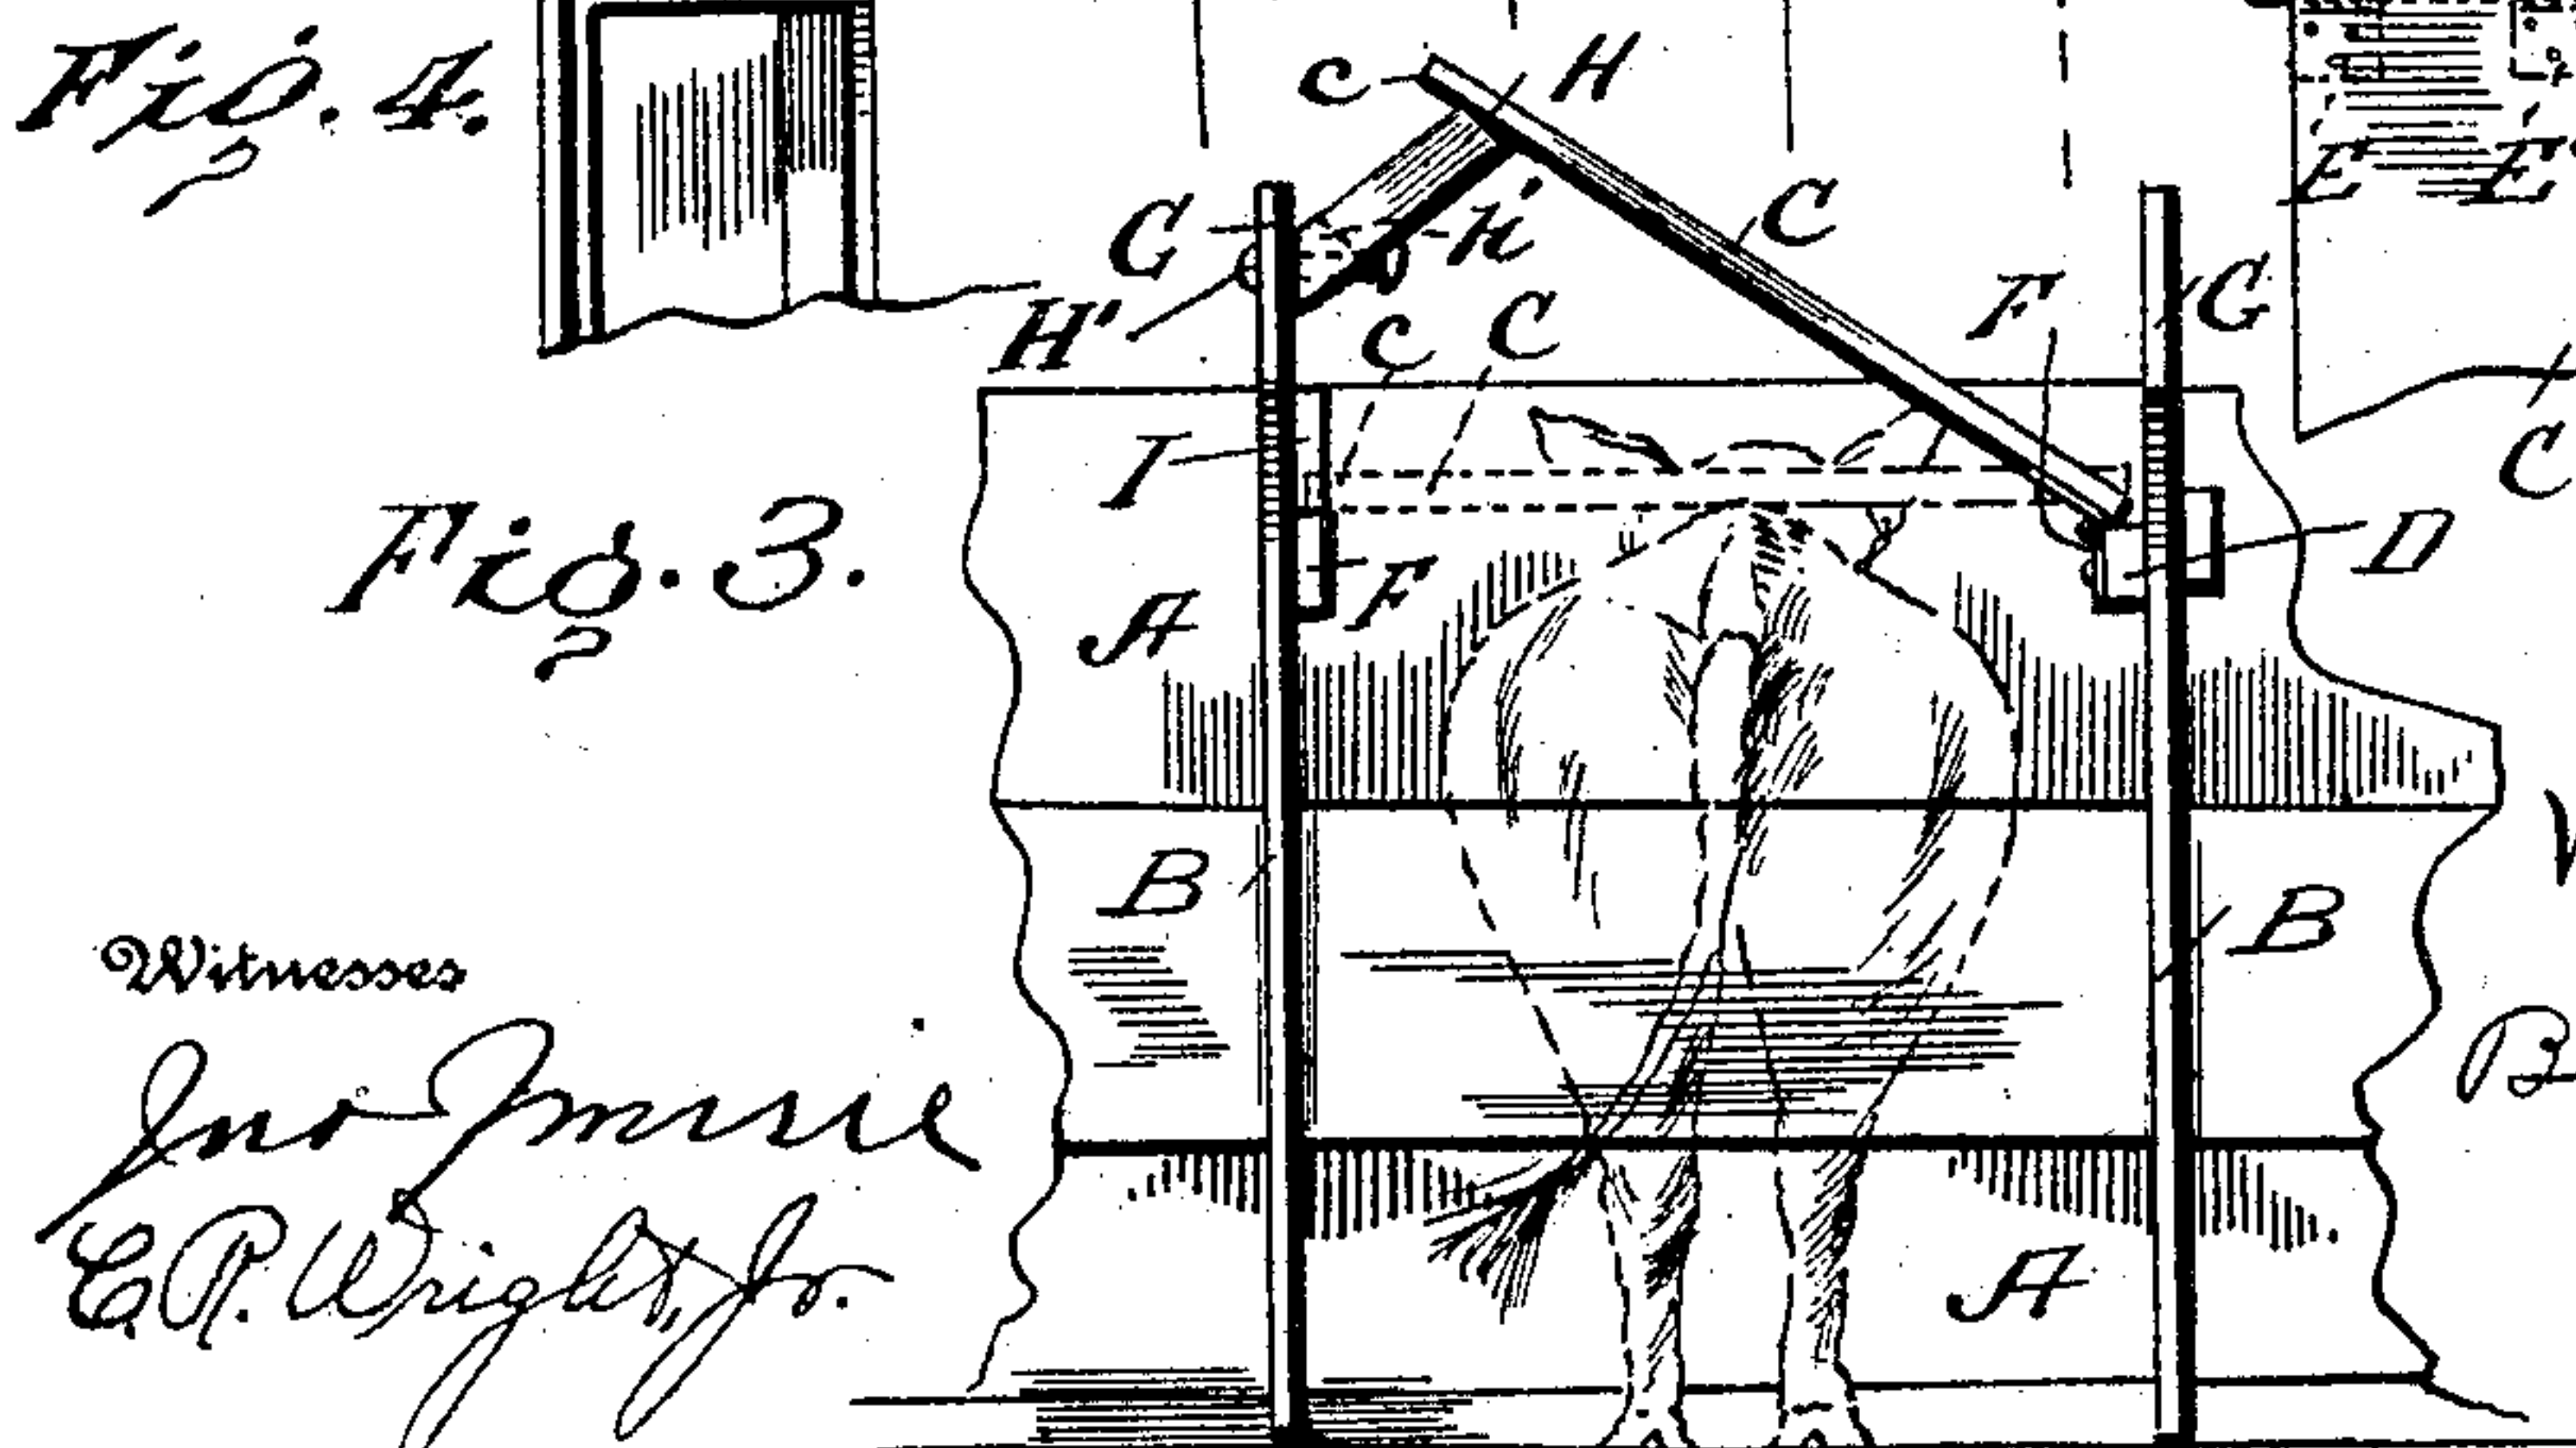 Fig. 4.
c H
E E'
G h' C
H' c C F G
I C
Fig. 3.
F D
A
B B
Witnesses
Jno Imirie
C. R. Wright, Jr.
A